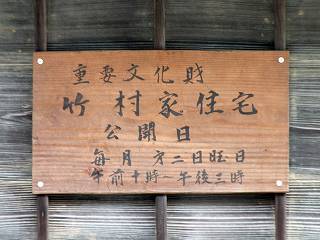 重要文化財
竹村家住宅
公開日
毎月第二日旺日
午前十時～午後三時